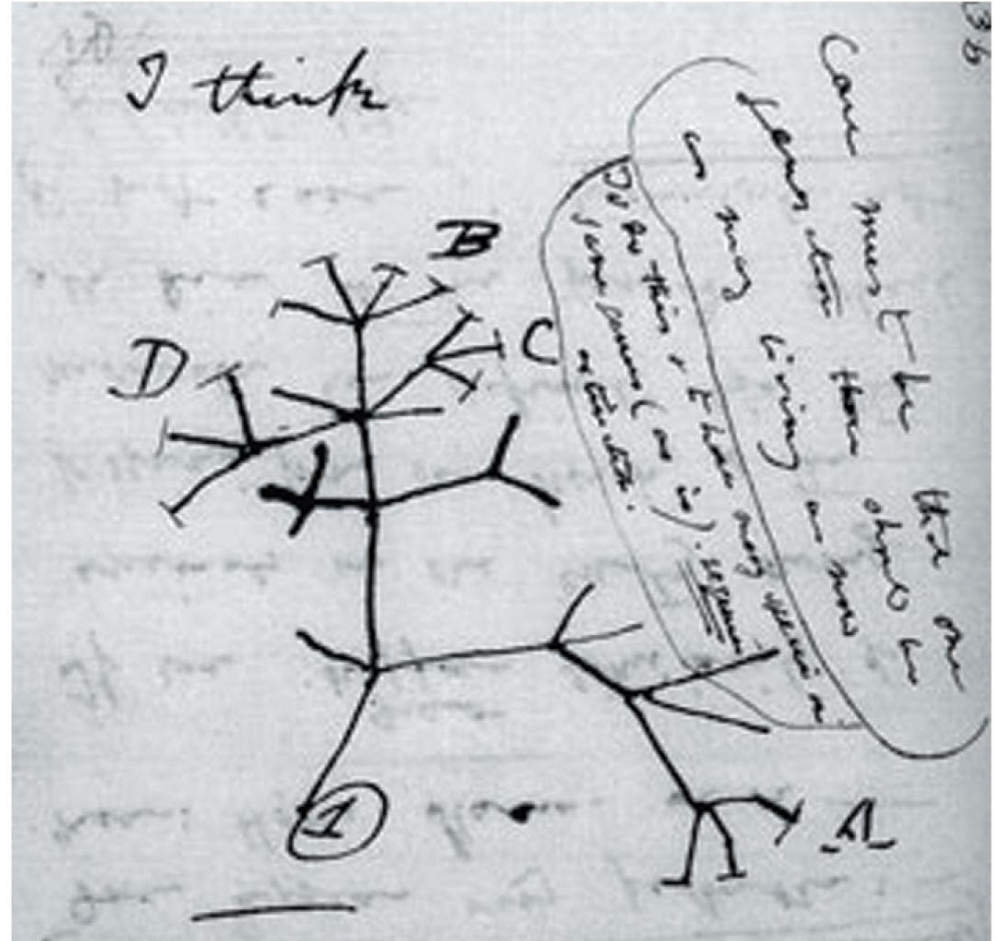 36
I think
B
D
C
1
A
Case must be that one
generation then should be
as many living as now
To do this & to have many species in
same genus (as is). requires
extinction.